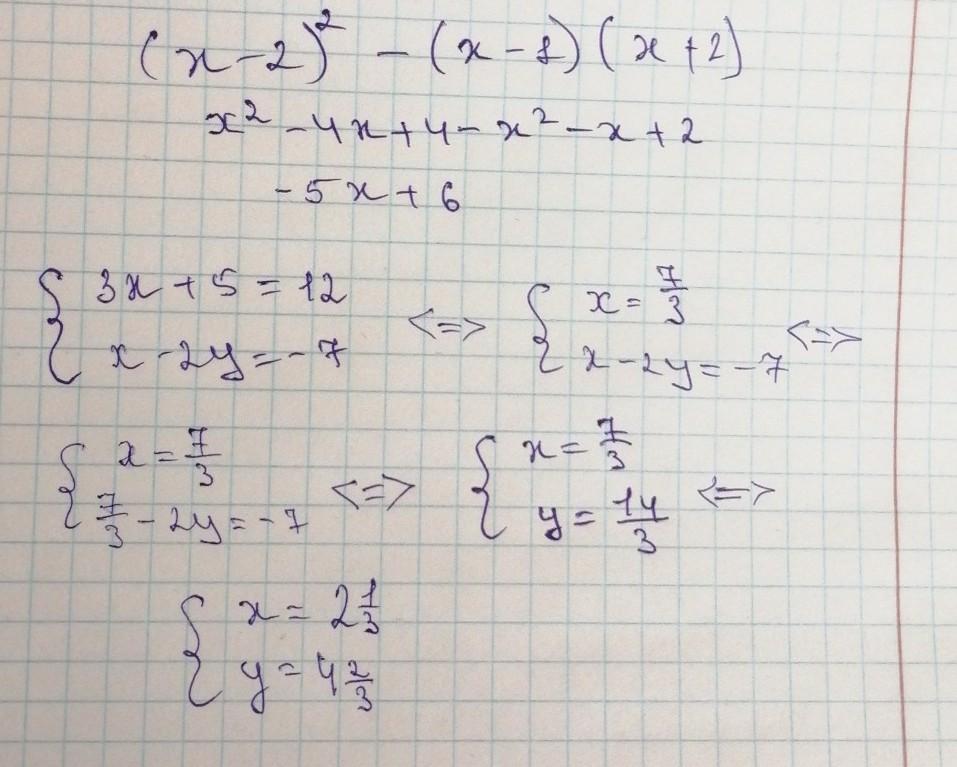 (x-2)² - (x-1)(x+2)
x² - 4x + 4 - x² - x + 2
-5x + 6
{ 3x + 5 = 12
x - 2y = -7 <=> { x = 7/3
x - 2y = -7 <=>
{ x = 7/3
7/3 - 2y = -7 <=> { x = 7/3
y = 14/3 <=>
{ x = 2 1/3
y = 4 2/3